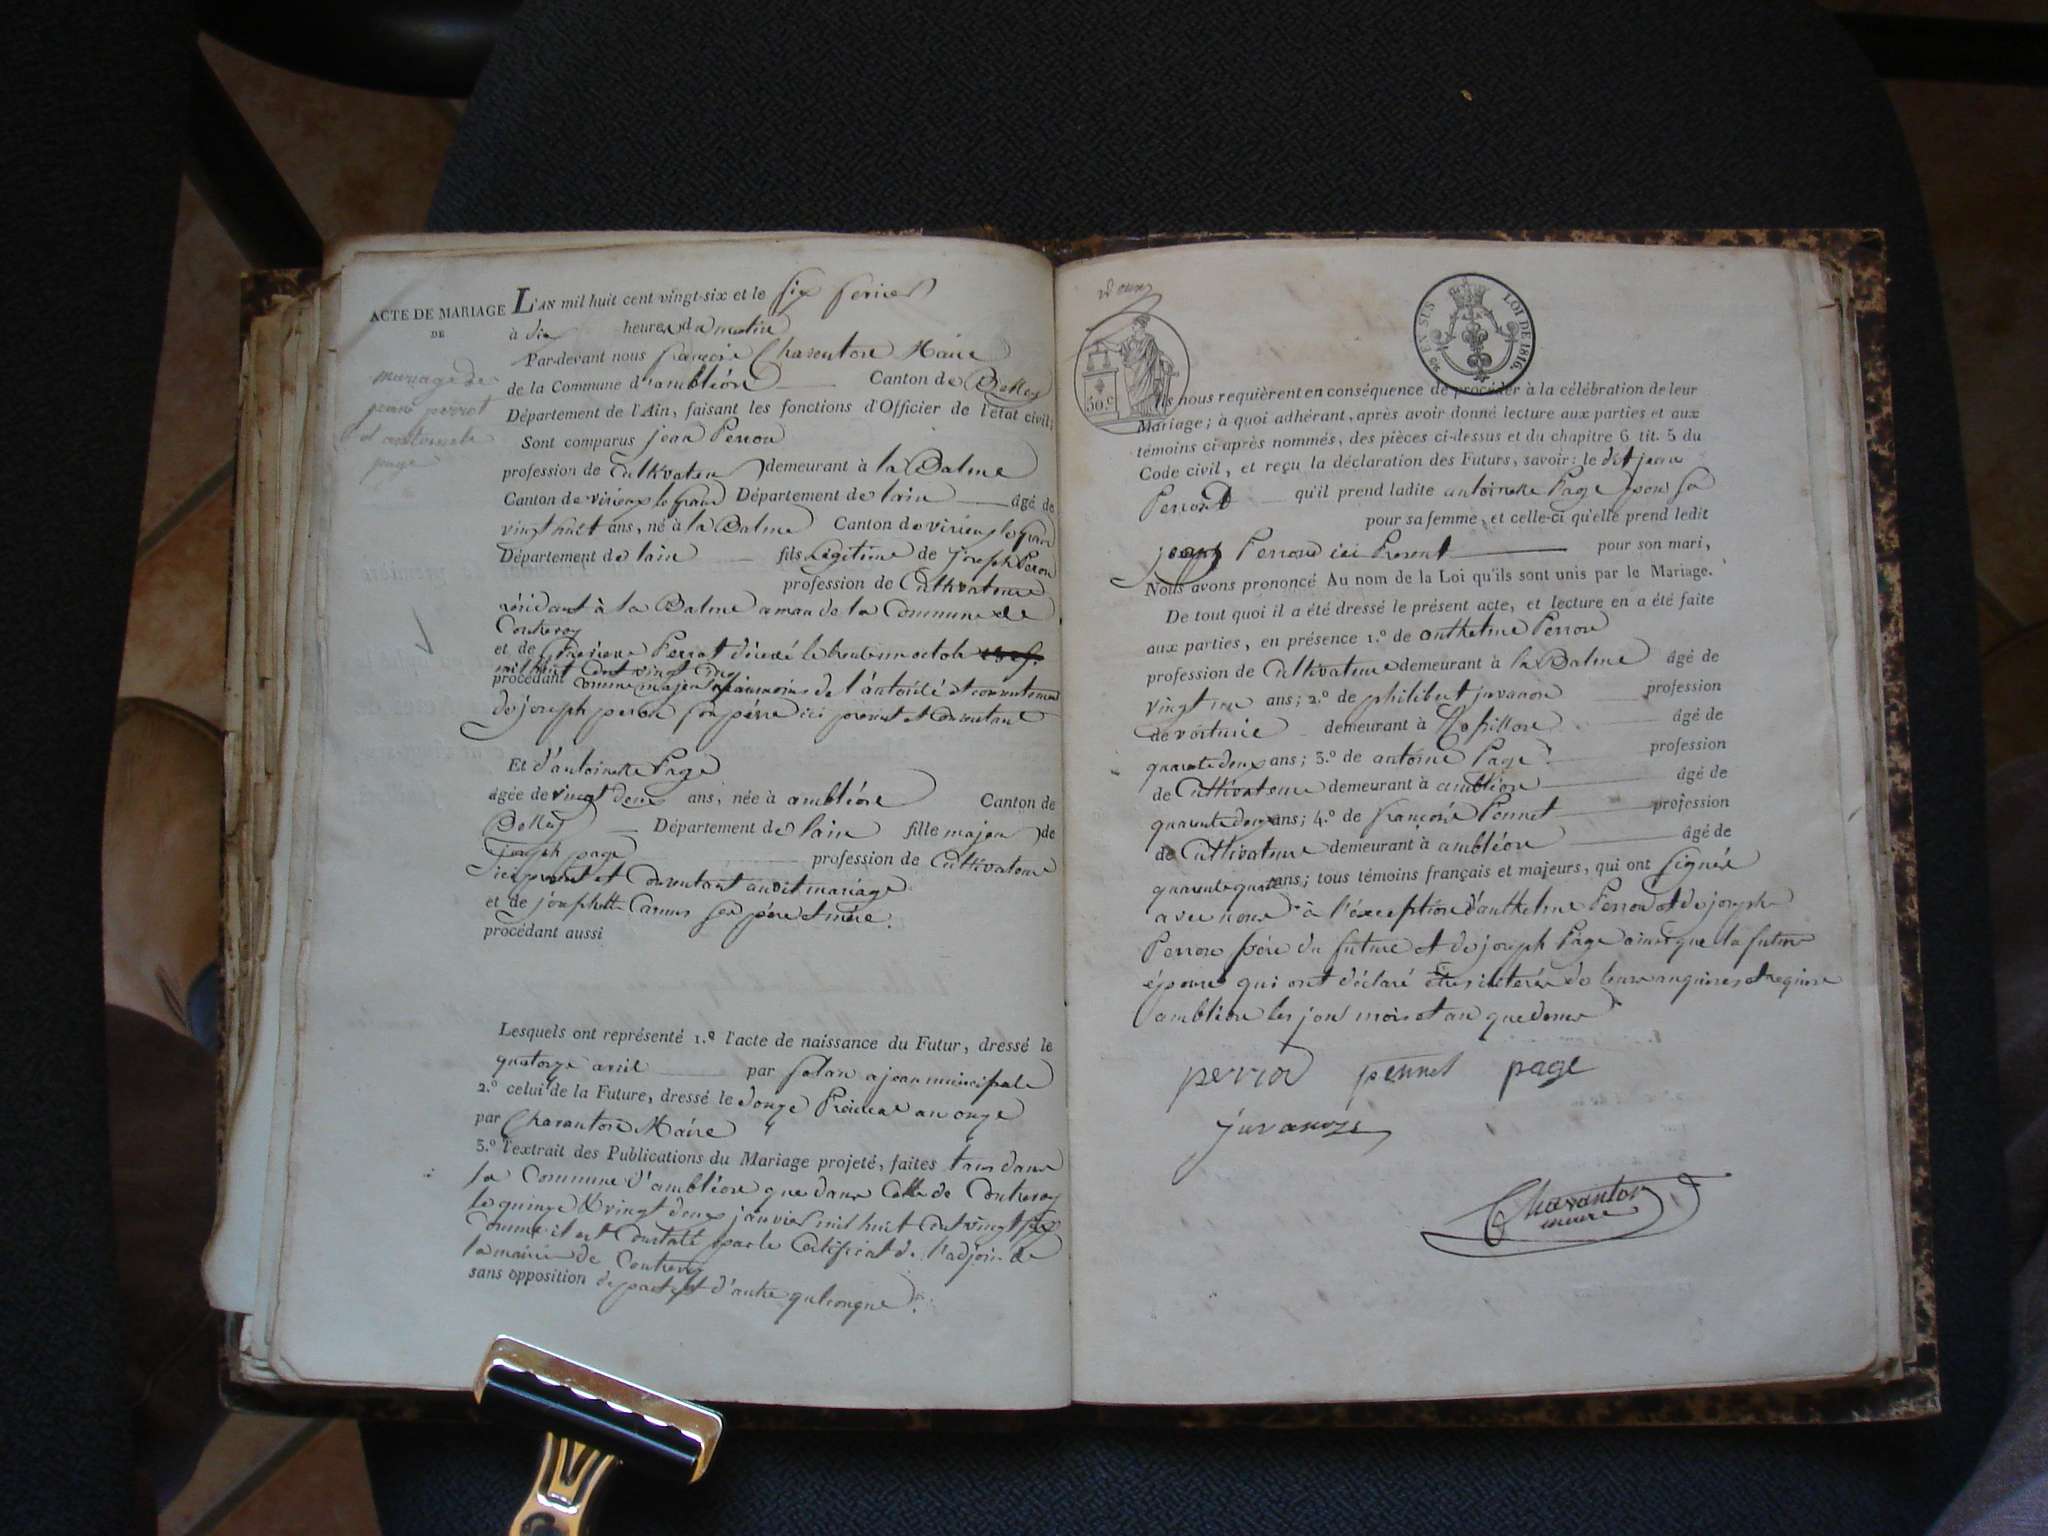 ACTE DE MARIAGE
DE
mariage de
jean perrot
et antoinette
page
L'AN mil huit cent vingt-six et le six fevrier
à dix heures du matin
Par-devant nous françois Charenton Maire
de la Commune d'ambléon Canton de Belley
Département de l'Ain, faisant les fonctions d'Officier de l'état civil;
Sont comparus jean Perron
profession de Cultivateur demeurant à la Balme
Canton de virieux le grand Département de lain âgé de
vingt huit ans, né à la Balme Canton de virieux le grand
Département de lain fils Légitime de joseph Peron
profession de Cultivateur
résidant à la Balme amau de la Commune de
Contrevoz
et de Perrot décédé le trente un octobre
mil huit cent vingt cinq
procédant comme majeur néanmoins de l'autorité et consentement
de joseph peron son père ici present et consentant
Et d'antoinette Page
âgée de vingt deux ans, née à ambléon Canton de
Belley Département de lain fille majeur de
joseph page profession de Cultivateur
ici present et Consentant audit mariage
et de josephte Carrus ses père et mère.
procédant aussi
Lesquels ont représenté 1.º l'acte de naissance du Futur, dressé le
quatorze avril par ajoan municipale
2.º celui de la Future, dressé le douze an onze
par Charanton Maire
3.º l'extrait des Publications du Mariage projeté, faites tans dans
la Commune d'ambléon que dans Celle de Contrevoz
le quinze & vingt deux janvier mil huit cent vingt six
Comme il est Constaté par le Certificat de l'adjoin de
la mairie de Contrevoz
sans opposition de part et d'autre quelconque.
50.c
EN SUS
LOI DE 1816.
Ils nous requièrent en conséquence de procéder à la célébration de leur
Mariage; à quoi adhérant, après avoir donné lecture aux parties et aux
témoins ci-après nommés, des pièces ci-dessus et du chapitre 6 tit. 5 du
Code civil, et reçu la déclaration des Futurs, savoir: le dit jean
Perron qu'il prend ladite antoinette Page pour sa
pour sa femme, et celle-ci qu'elle prend ledit
joseph Perron ici Present pour son mari,
Nous avons prononcé Au nom de la Loi qu'ils sont unis par le Mariage.
De tout quoi il a été dressé le présent acte, et lecture en a été faite
aux parties, en présence 1.º de anthelme Perron
profession de Cultivateur demeurant à la Balme âgé de
vingt ans; 2.º de philibert juvanon profession
de voiturié demeurant à âgé de
quarante deux ans; 3.º de antoine Page profession
de Cultivateur demeurant à ambléon âgé de
quarante deux ans; 4.º de françois Ponnet profession
de Cultivateur demeurant à ambléon âgé de
quarante quatre ans; tous témoins français et majeurs, qui ont signés
avec nous à l'exception d'anthelme Perron et de joseph
Perron père du future et de joseph Page ainsi que la future
épouse qui ont déclaré être de leurs enquires et require
ambléon les jour mois et an que dessus
perrod pennet page
juvanon
Charanton
maire